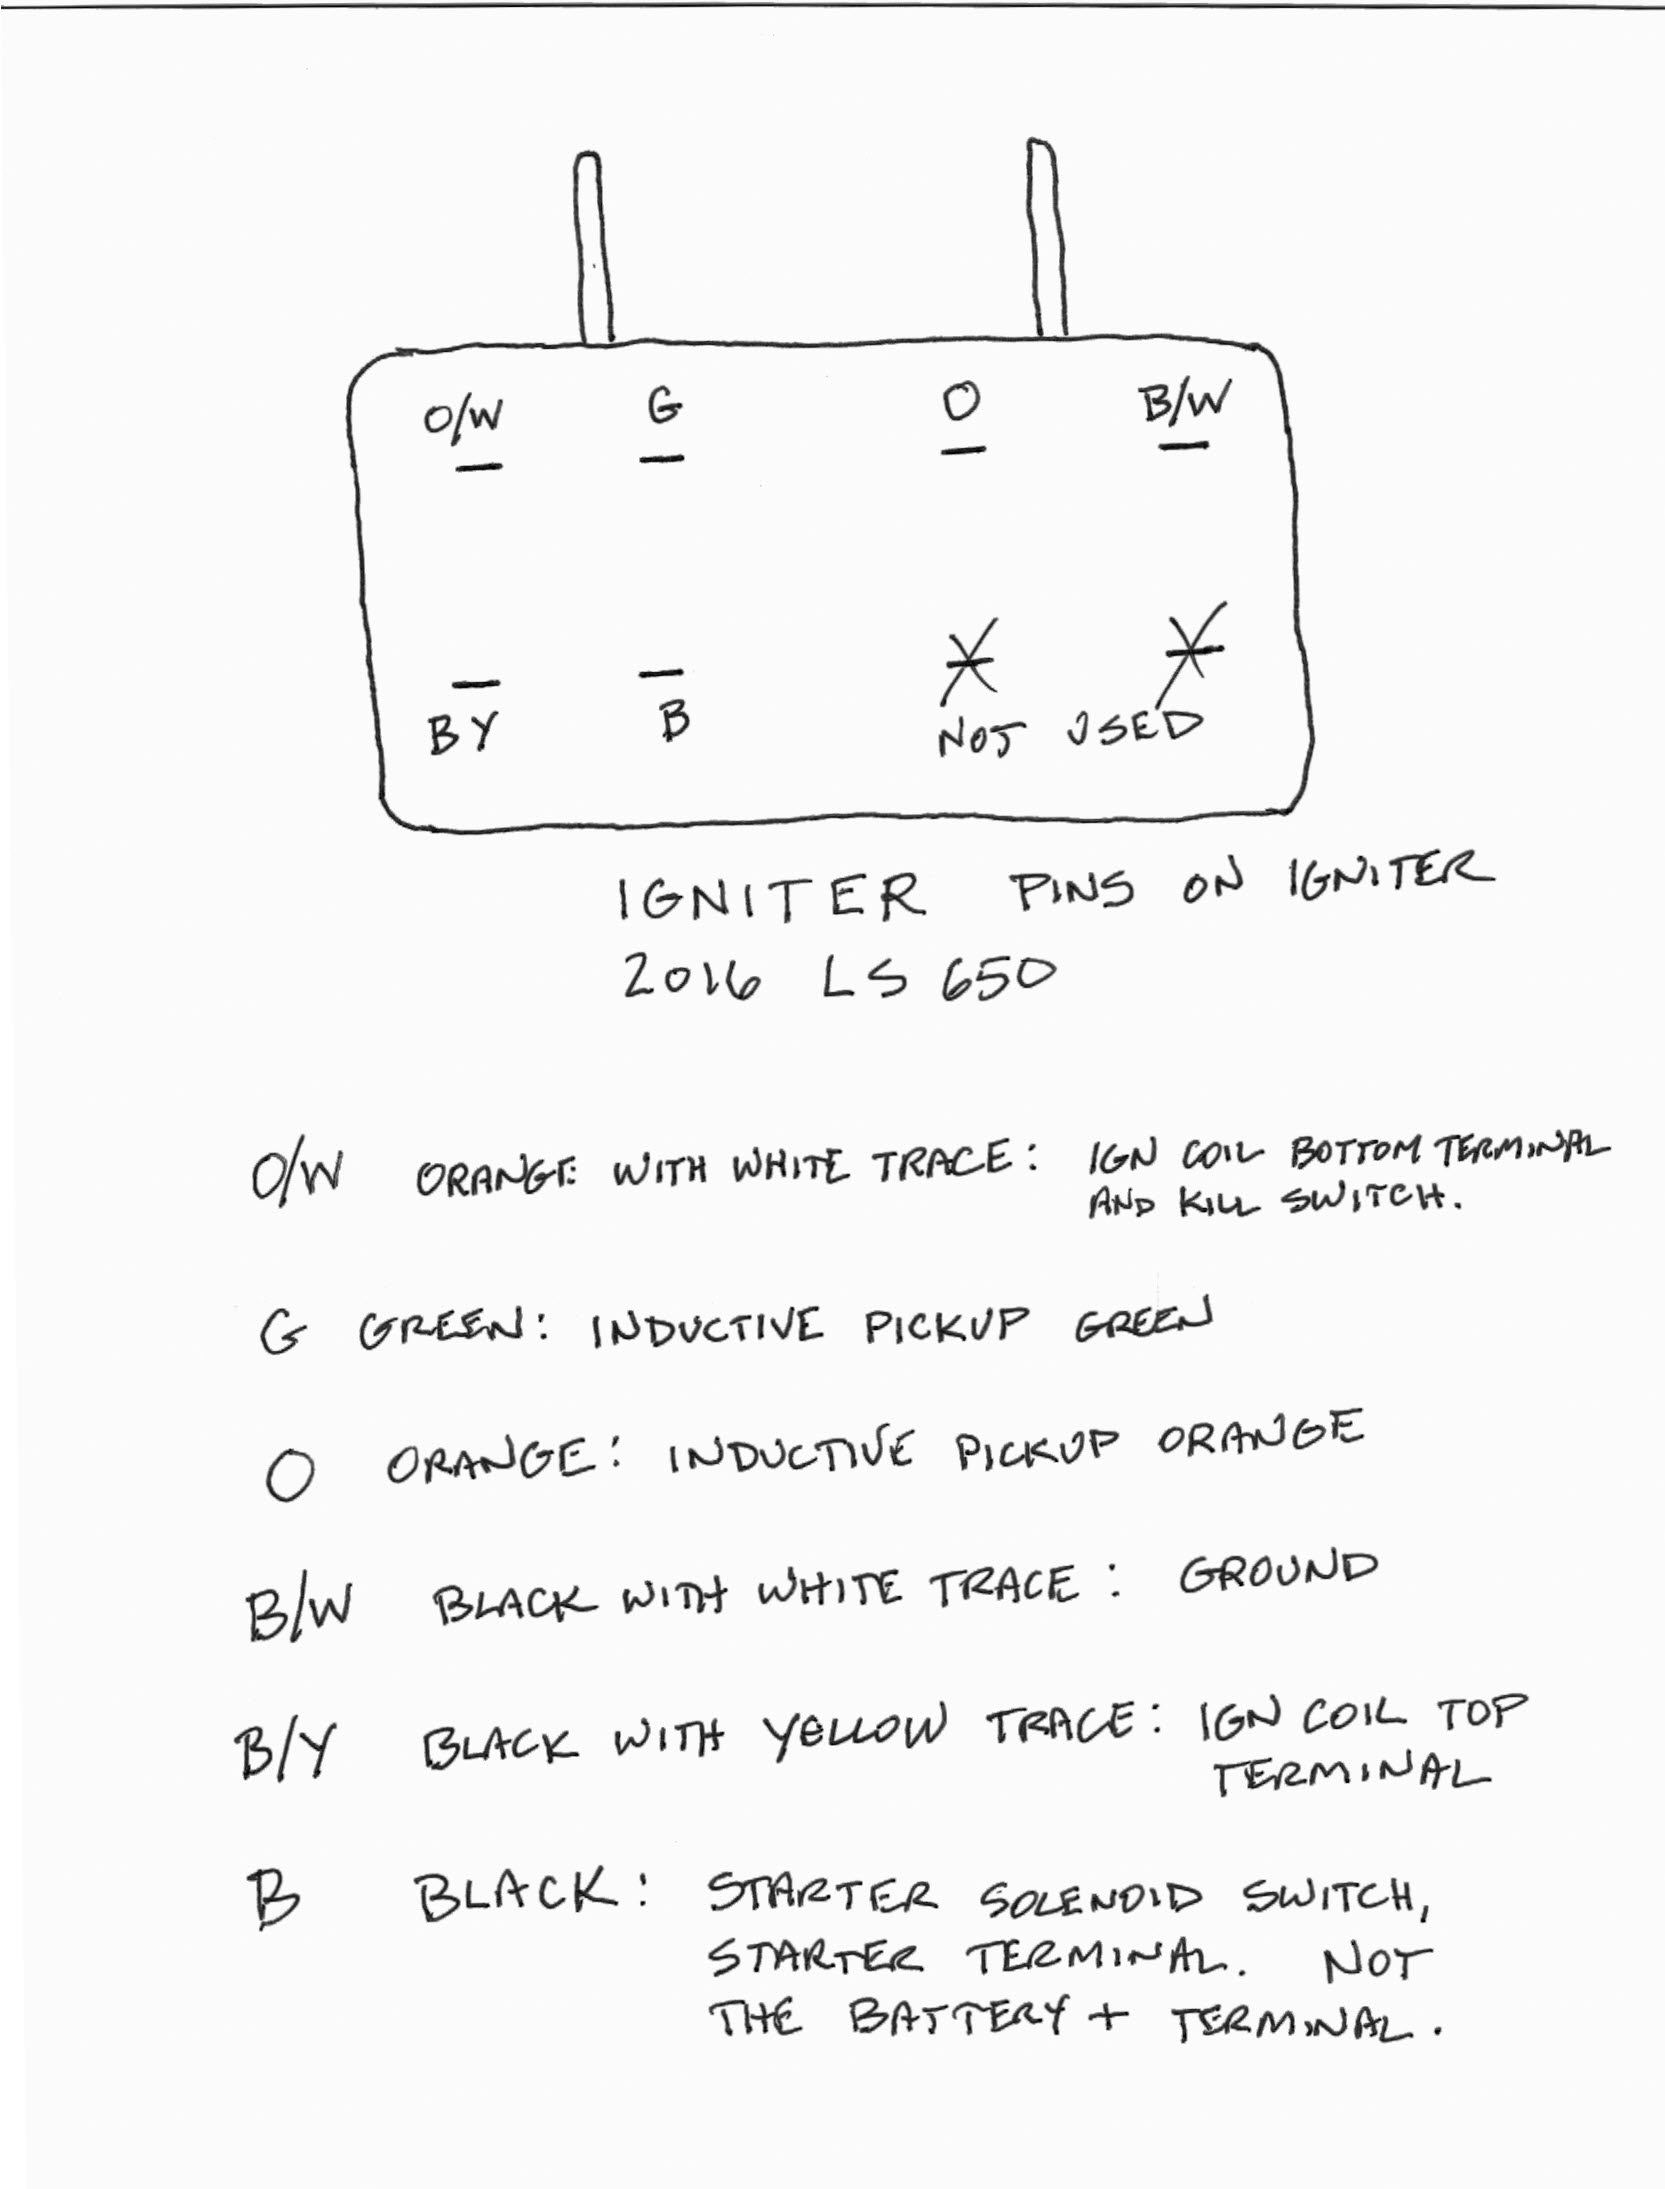 O/W G O B/W
BY B NOT USED
IGNITER PINS ON IGNITER
2016 LS 650
O/W ORANGE WITH WHITE TRACE: IGN COIL BOTTOM TERMINAL
AND KILL SWITCH.
G GREEN: INDUCTIVE PICKUP GREEN
O ORANGE: INDUCTIVE PICKUP ORANGE
B/W BLACK WITH WHITE TRACE: GROUND
B/Y BLACK WITH YELLOW TRACE: IGN COIL TOP
TERMINAL
B BLACK: STARTER SOLENOID SWITCH,
STARTER TERMINAL. NOT
THE BATTERY + TERMINAL.